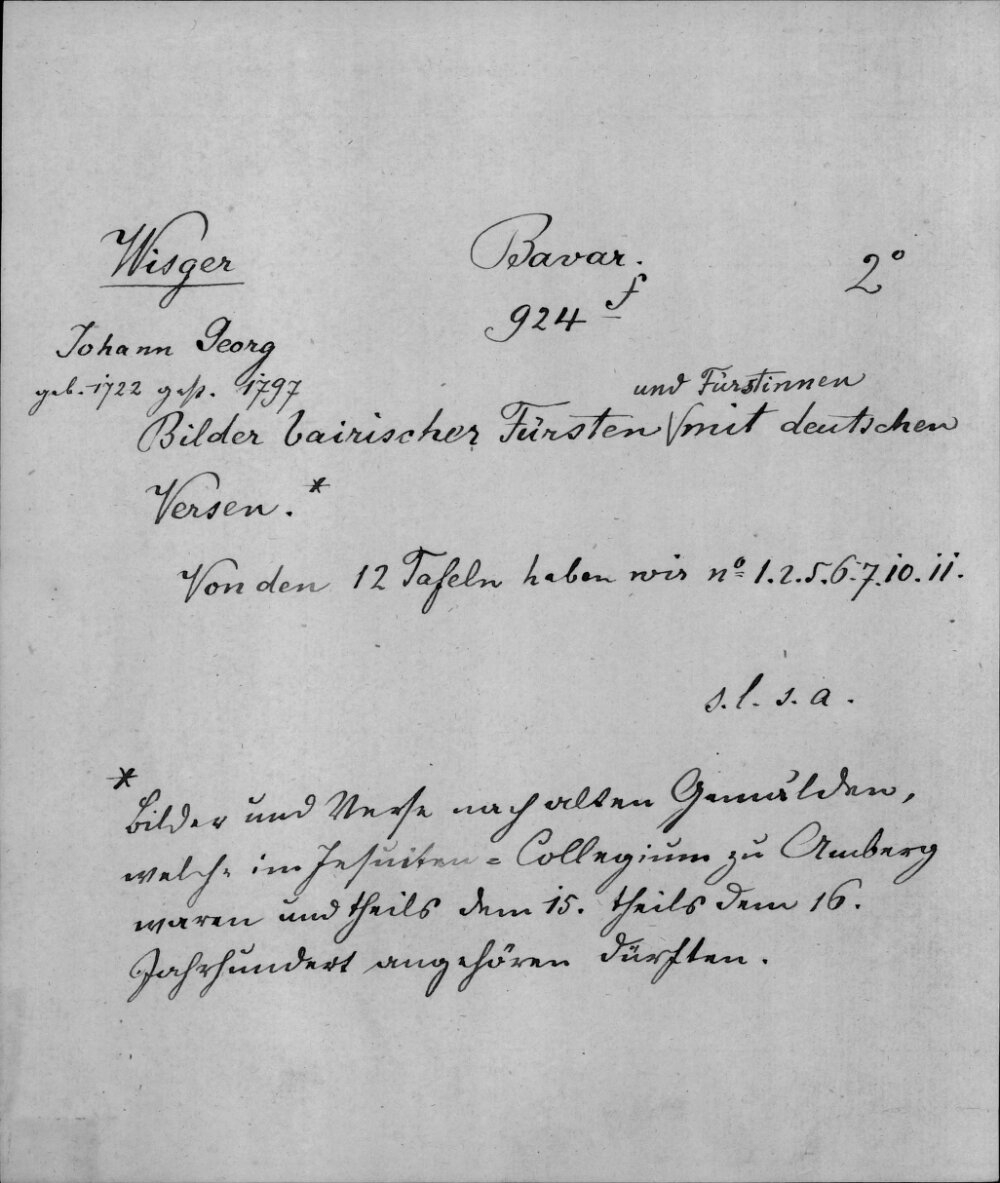 Wisger Bavar. 2°
924 f
Johann Georg
geb. 1722 gest. 1797
und Fürstinnen
Bilder bairischer Fürsten √mit deutschen
Versen.*
Von den 12 Tafeln haben wir nº 1.2.5.6.7.10.11.
s. l. s. a.
*
Bilder und Verse nach alten Gemälden,
welche im Jesuiten=Collegium zu Amberg
waren und theils dem 15. theils dem 16.
Jahrhundert angehören dürften.